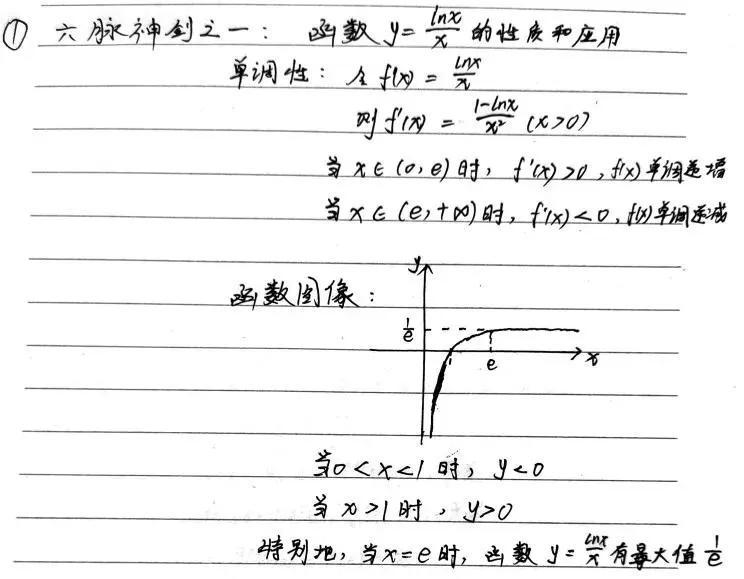 ① 六脉神剑之一: 函数 y = lnx/x 的性质和应用
单调性: 令 f(x) = lnx/x
则 f'(x) = 1-lnx/x² (x>0)
当 x∈(0,e) 时, f'(x)>0, f(x)单调递增
当 x∈(e,+∞) 时, f'(x)<0, f(x)单调递减
y
函数图像:
1/e
e
x
当0<x<1 时, y<0
当 x>1 时, y>0
特别地, 当x=e 时, 函数 y = lnx/x 有最大值 1/e